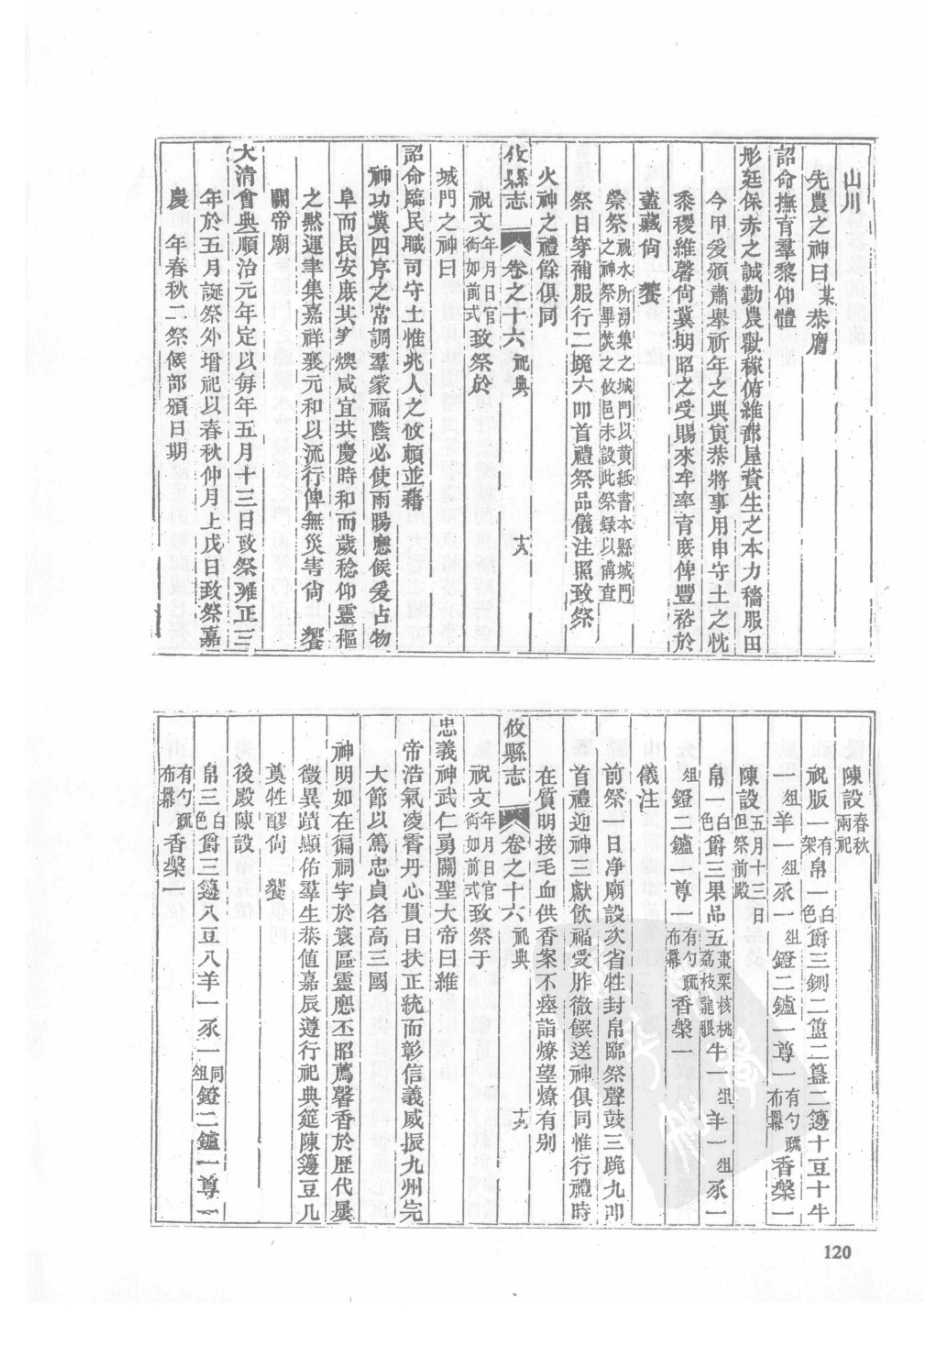 山川
先農之神曰某恭膺
詔命撫育羣黎仰體
彤廷保赤之誠勸農勸稼俯維蔀屋資生之本力穡服田
今甲爰頒肅舉祈年之典寅恭將事用申守土之忱
黍稷維馨尙冀明昭之受賜來牟率育庶俾豐裕於
蓋藏尙　饗
禜祭祝水所湧集之城門以黄紙書本縣城門
之神祭畢焚之攸邑未設此祭録以備查
祭日穿補服行二跪六叩首禮祭品儀注照致祭
火神之禮餘俱同
攸縣志　卷之十六　祀典　十八
祝文年月日官銜如前式致祭於
城門之神曰
詔命臨民職司守土惟兆人之攸頼並藉
神功冀四序之常調羣蒙福蔭必使雨暘應候爰占物
阜而民安庶其寒燠咸宜共慶時和而歲稔仰靈樞
之黙運聿集嘉祥裒元和以流行俾無災害尙　饗
關帝廟
大清會典順治元年定以每年五月十三日致祭雍正三
年於五月誕祭外增祀以春秋仲月上戊日致祭嘉
慶　年春秋二祭候部頒日期
陳設春秋兩祀
祝版一有架帛一白色爵三鉶二簠二簋二籩十豆十牛
一俎羊一俎豕一俎鐙二鑪一尊一有勺疏布羃香槃一
陳設五月十三日但祭前殿
帛一白色爵三果品五棗栗核桃荔枝龍眼牛一俎羊一俎豕一
俎鐙二鑪一尊一有勺疏布羃香槃一
儀注
前祭一日净廟設次省牲封帛臨祭聲鼓三跪九叩
首禮迎神三獻飮福受胙徹饌送神俱同惟行禮時
在質明接毛血供香案不瘞詣燎望燎有别
攸縣志　卷之十六　祀典　十九
祝文年月日官銜如前式致祭于
忠義神武仁勇關聖大帝曰維
帝浩氣凌霄丹心貫日扶正統而彰信義威振九州完
大節以篤忠貞名高三國
神明如在徧祠宇於寰區靈應丕昭薦馨香於歷代屢
徵異蹟顯佑羣生恭值嘉辰遵行祀典筵陳籩豆几
奠牲醪尙　饗
後殿陳設
帛三白色爵三籩八豆八羊一豕一同俎鐙二鑪一尊一
有勺疏布羃香槃一
120